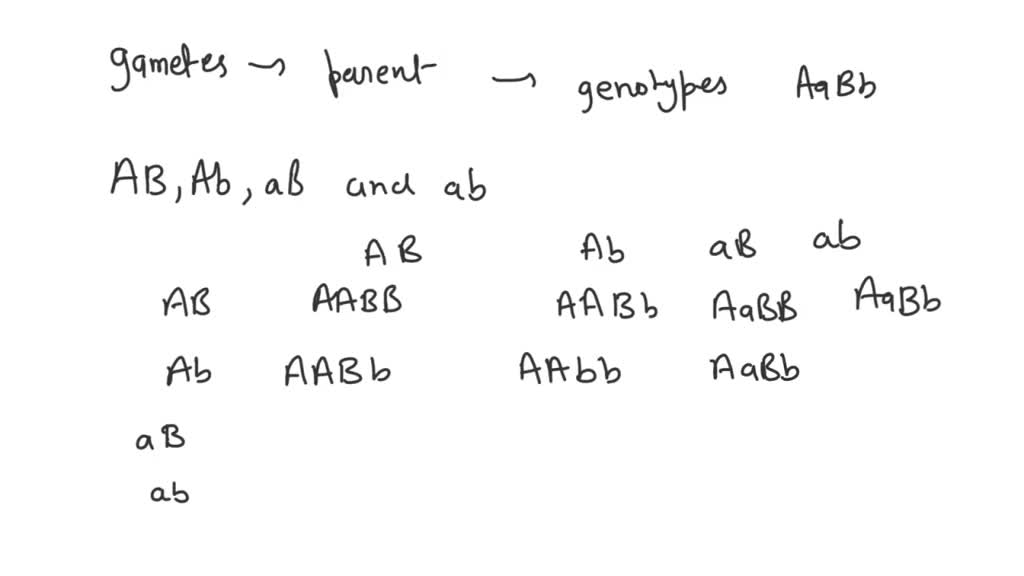 gametes → parent → genotypes AaBb
AB, Ab, aB and ab
AB Ab aB ab
AB AABB AABb AaBB AaBb
Ab AABb AAbb AaBb
aB
ab